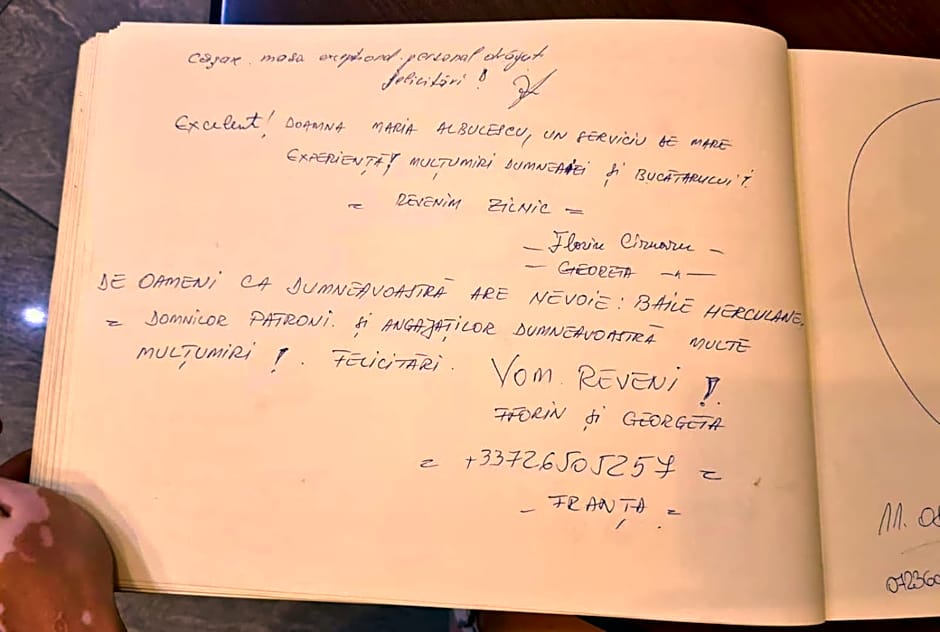 Cazare, masa exceptional. personal drăguț
felicitări!
Excelent! DOAMNA MARIA ALBULESCU, UN SERVICIU DE MARE
EXPERIENȚĂ! MULȚUMIRI DUMNEAEI și BUCĂTARULUI!
= REVENIM ZILNIC =
- Florin -
- GEORGETA -"-
DE OAMENI CA DUMNEAVOASTRĂ ARE NEVOIE: BAILE HERCULANE.
= DOMNILOR PATRONI. și ANGAJAȚILOR DUMNEAVOASTRĂ MULTE
MULȚUMIRI !. FELICITĂRI.
VOM REVENI !
FLORIN și GEORGETA
= +33726505257 =
- FRANȚA =
11.